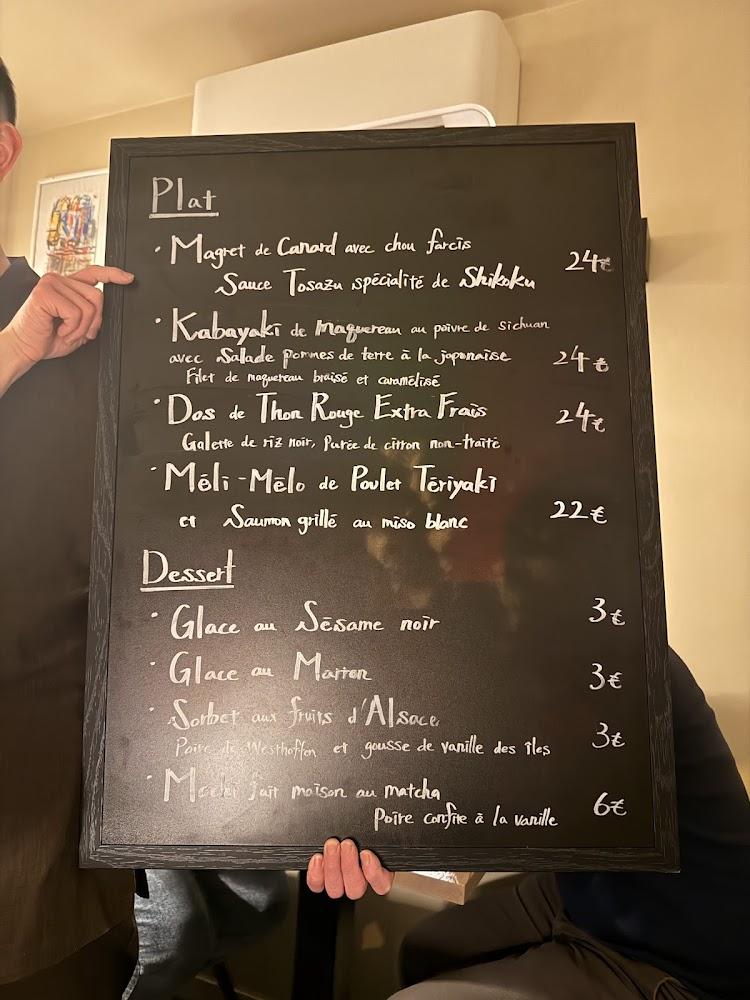 Plat
· Magret de Canard avec chou farcis
Sauce Tosazu spécialité de Shikoku 24€
· Kabayaki de Maquereau au poivre de Sichuan
avec Salade pommes de terre à la japonaise 24€
Filet de maquereau braisé et caramélisé
· Dos de Thon Rouge Extra Frais 24€
Galette de riz noir, Purée de citron non-traité
· Méli-Mélo de Poulet Tériyaki
et Saumon grillé au miso blanc 22€
Dessert
· Glace au Sésame noir 3€
· Glace au Marron 3€
· Sorbet aux fruits d'Alsace 3€
Poire de Westhoffen et gousse de vanille des îles
· Mochi fait maison au matcha
Poire confite à la vanille 6€